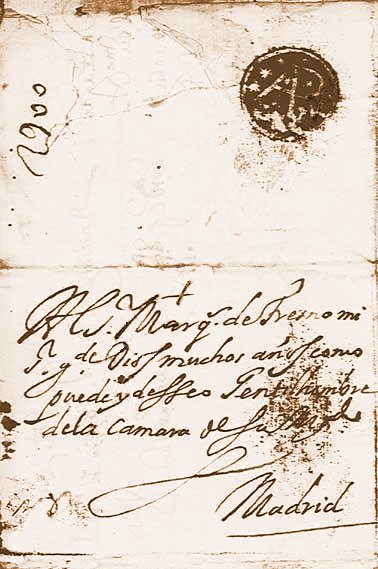 Al S. Marq.s de Fresno mi
S. g. de Dios muchos años como
puede y desseo Gentilhombre
de la Camara de Su Mg.d
Madrid